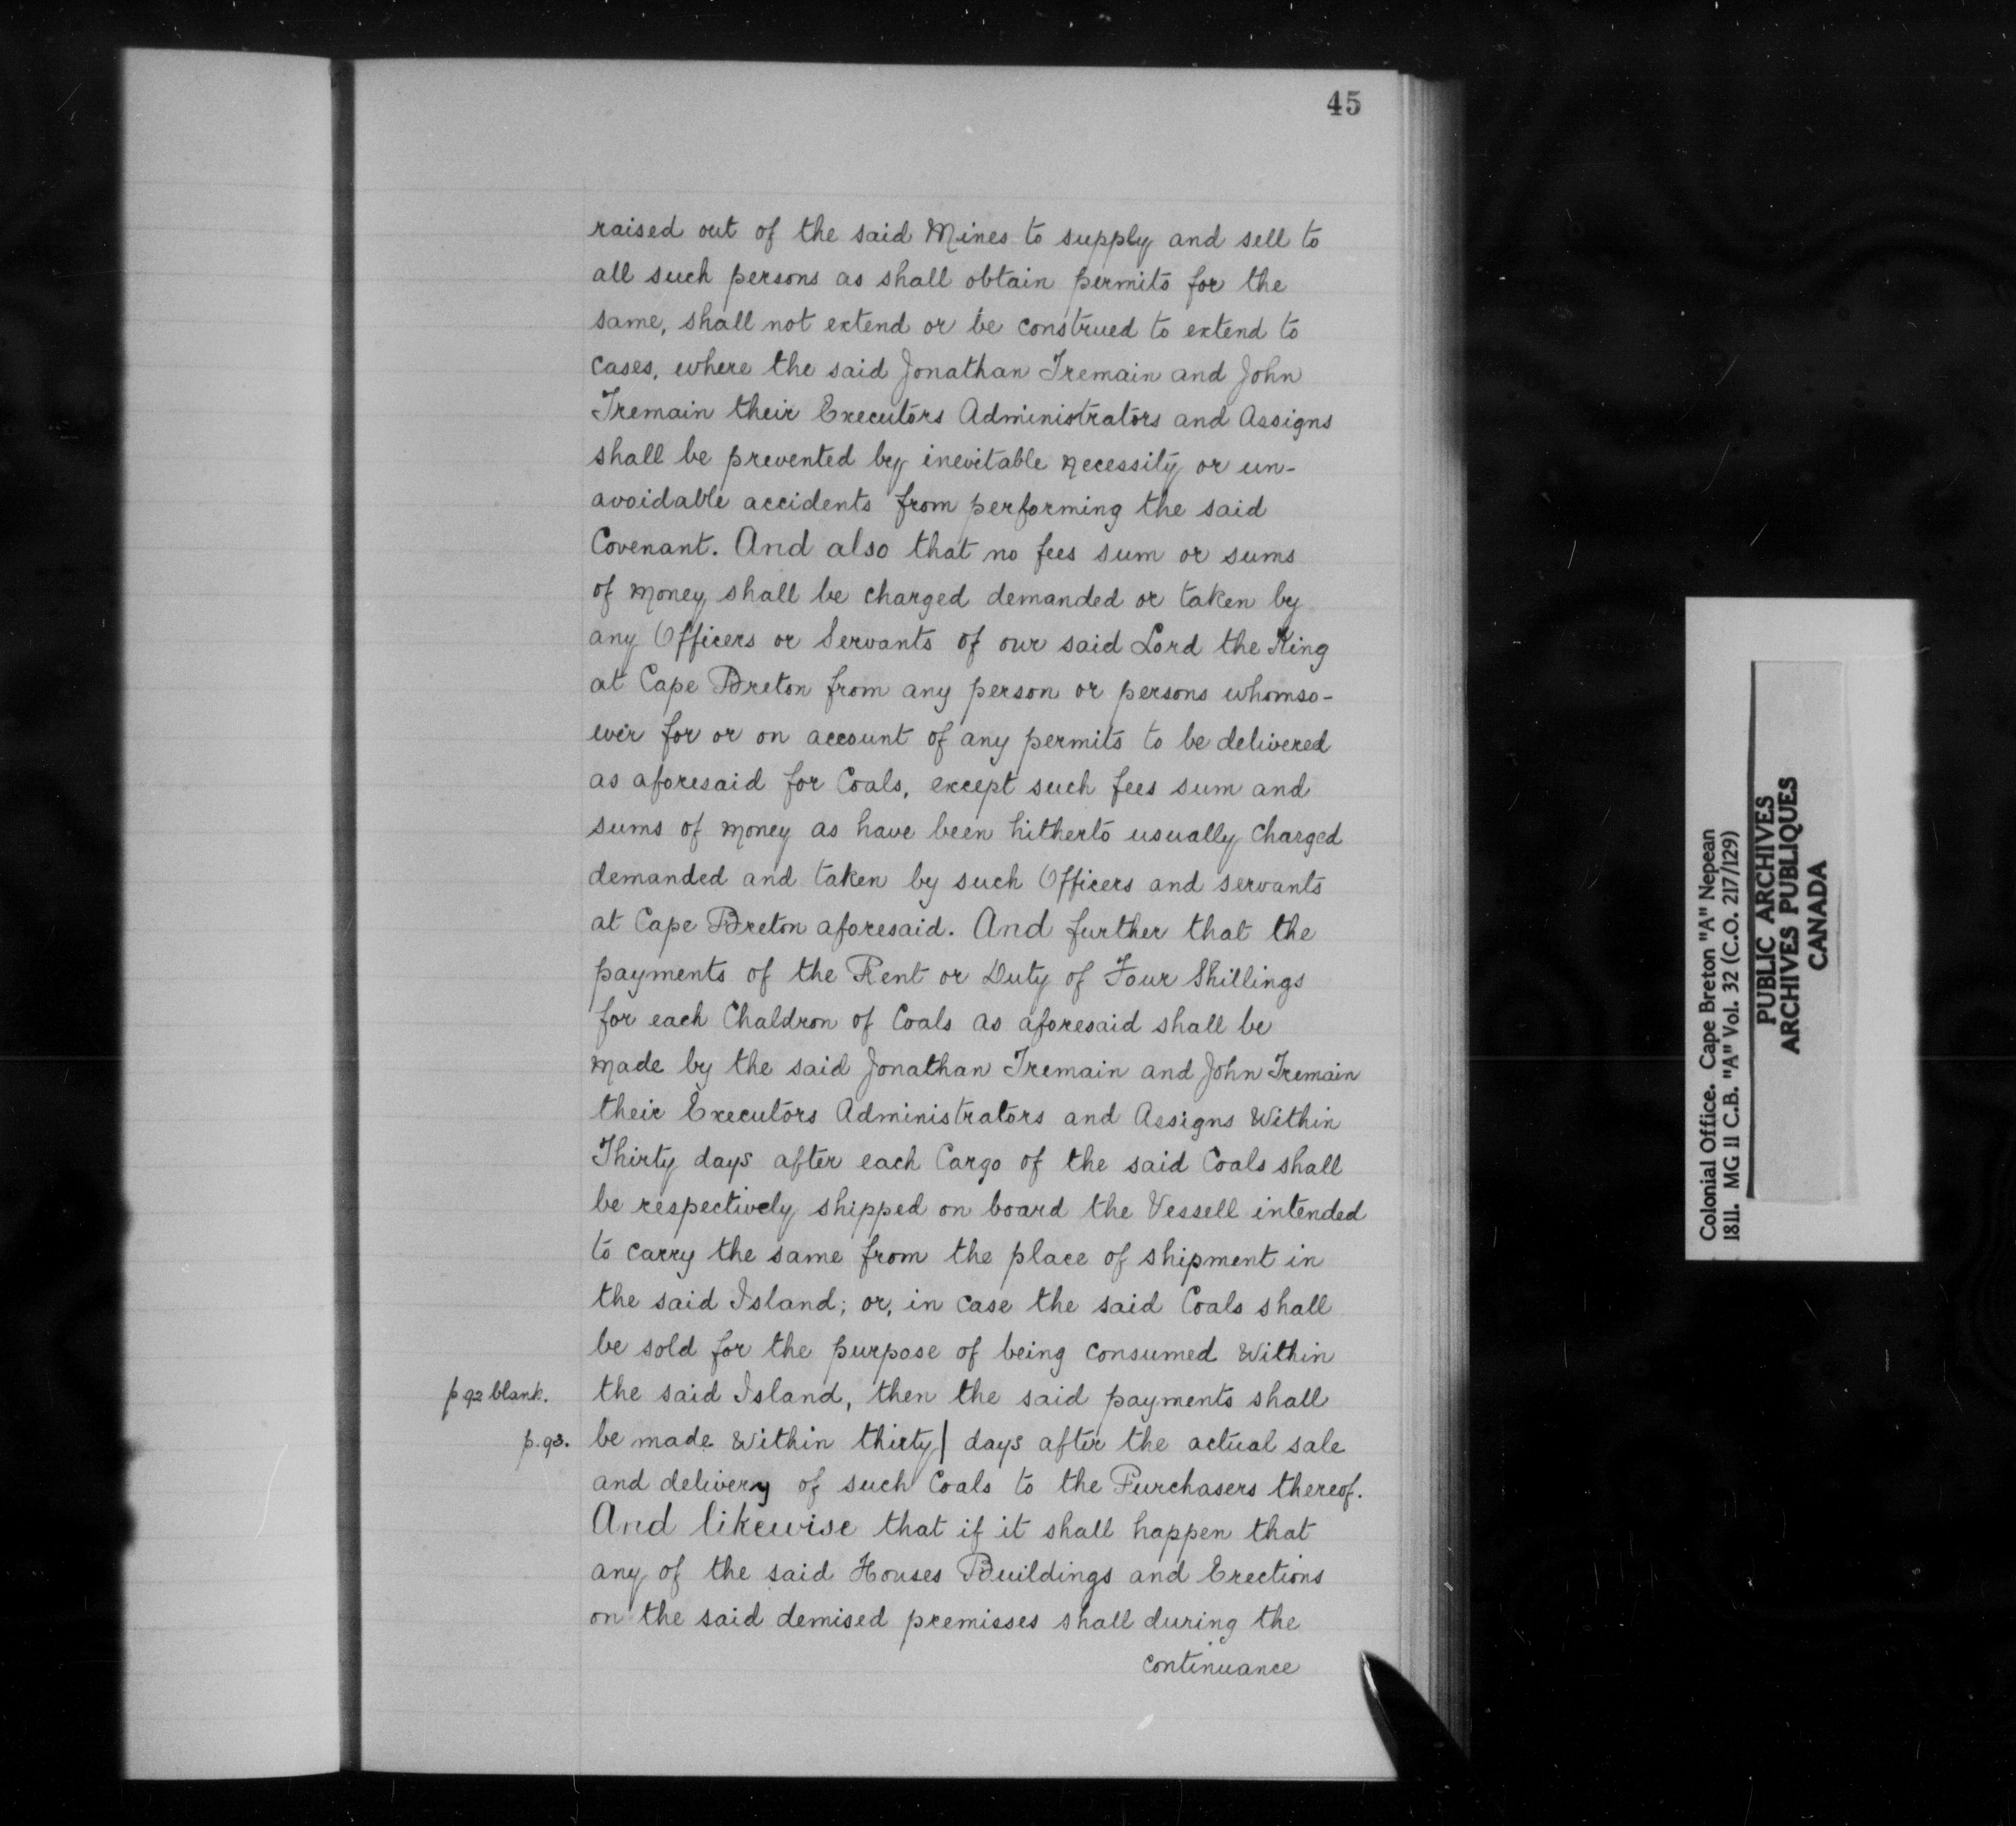 45
raised out of the said Mines to supply and sell to
all such persons as shall obtain permits for the
same, shall not extend or be construed to extend to
cases, where the said Jonathan Tremain and John
Tremain their Executors Administrators and Assigns
shall be prevented by inevitable necessity or un-
avoidable accidents from performing the said
Covenant. And also that no fees sum or sums
of money shall be charged demanded or taken by
any Officers or Servants of our said Lord the King
at Cape Breton from any person or persons whomso-
ever for or on account of any permits to be delivered
as aforesaid for Coals, except such fees sum and
sums of money as have been hitherto usually charged
demanded and taken by such Officers and servants
at Cape Breton aforesaid. And further that the
payments of the Rent or Duty of Four Shillings
for each Chaldron of Coals as aforesaid shall be
made by the said Jonathan Tremain and John Tremain
their Executors Administrators and Assigns Within
Thirty days after each Cargo of the said Coals shall
be respectively shipped on board the Vessell intended
to carry the same from the place of shipment in
the said Island; or, in case the said Coals shall
be sold for the purpose of being consumed Within
p 92 blank. the said Island, then the said payments shall
p. 93. be made Within thirty| days after the actual sale
and delivery of such Coals to the Purchasers thereof.
And likewise that if it shall happen that
any of the said Houses Buildings and Erections
on the said demised premisses shall during the
continuance
Colonial Office. Cape Breton "A" Nepean
1811. MG 11 C.B. "A" Vol. 32 (C.O. 217/129)
PUBLIC ARCHIVES
ARCHIVES PUBLIQUES
CANADA